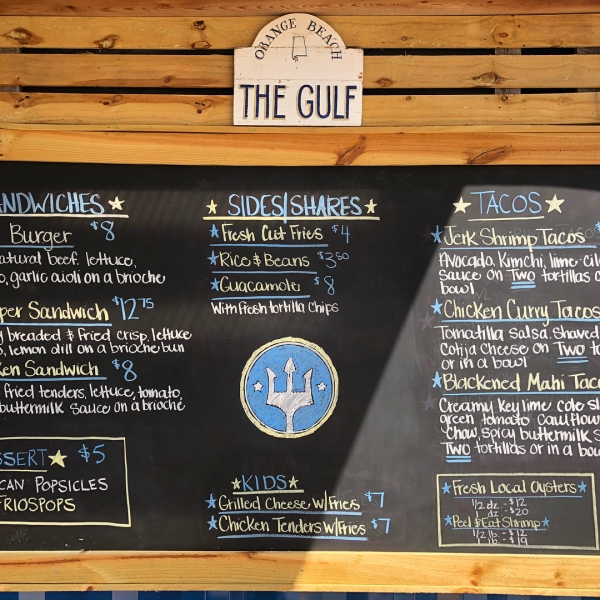 ORANGE BEACH
THE GULF
NDWICHES
Burger $8
atural beef, lettuce,
o, garlic aioli on a brioche
per Sandwich $12 75
y breaded & fried crisp, lettuce
s, lemon dill on a brioche bun
ken Sandwich $8
fried tenders, lettuce, tomato,
buttermilk sauce on a brioche
SSERT $5
CAN POPSICLES
FRIOSPOPS
SIDES/SHARES
Fresh Cut Fries $4
Rice & Beans $3 50
Guacamole $8
With fresh tortilla Chips
KIDS
Grilled Cheese W/Fries $7
Chicken Tenders W/Fries $7
TACOS
Jerk Shrimp Tacos $
Avocado, Kimchi, lime-cil
Sauce on Two tortillas o
bowl
Chicken Curry Tacos
Tomatilla Salsa, Shaved
Cotija Cheese on Two to
or in a bowl
Blackened Mahi Tac
Creamy Key lime cole sl
green tomato cauliflow
Chow, spicy buttermilk s
Two tortillas or in a bow
Fresh Local Oysters
1/2 dz. - $12
dz. - $20
Peel & Eat Shrimp
1/2 lb. - $12
lb. - $19